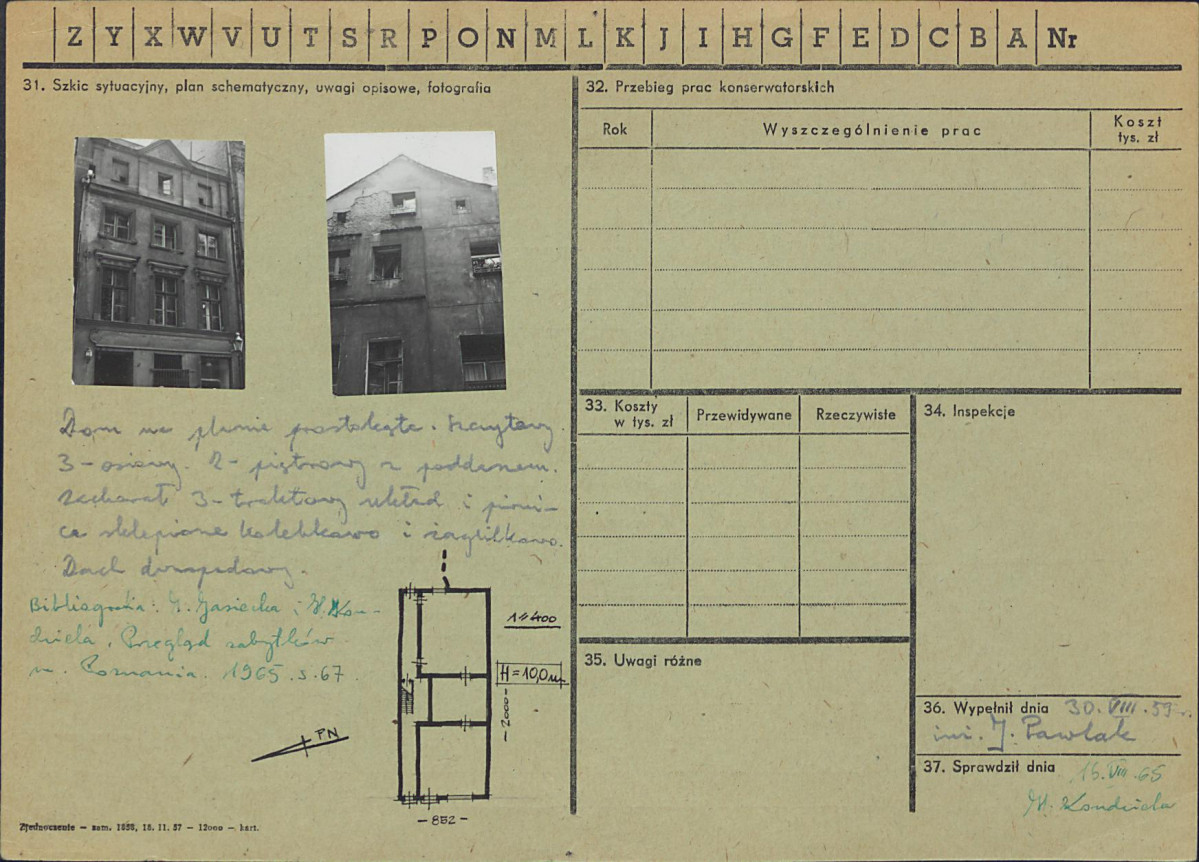 Z Y X W V U T S R P O N M L K J I H G F E D C B A Nr
31. Szkic sytuacyjny, plan schematyczny, uwagi opisowe, fotografia
Dom na planie prostokąta. Szczytowy.
3-osiowy. 2-piętrowy z poddaszem.
Zachował 3-traktowy układ i piwni-
ce sklepione kolebkowo i żaglikowo.
Dach dwuspadowy.
Bibliografia: I. Jasiecka i H. Kon-
dziela, Przegląd zabytków
m. Poznania. 1965. s. 67.
1:400
H=10,0 m
-2000-
PN
-852-
Zjednoczenie — zam. 1858, 18. II. 57 — 12000 — kart.
32. Przebieg prac konserwatorskich
Rok
Wyszczególnienie prac
Koszt
tys. zł
33. Koszty
w tys. zł
Przewidywane
Rzeczywiste
34. Inspekcje
35. Uwagi różne
36. Wypełnił dnia 30. VIII. 59 r.
inż. J. Pawlak
37. Sprawdził dnia 16. VIII. 65
H. Kondziela